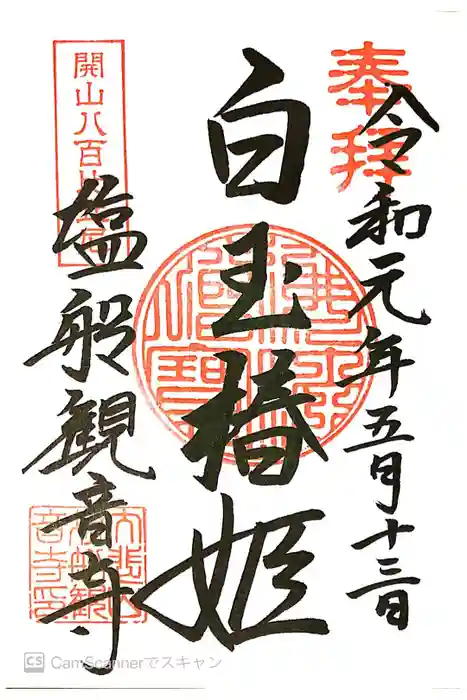 奉拝
令和元年五月十三日
白玉椿姫
開山八百比丘尼
塩船観音寺
CS CamScannerでスキャン